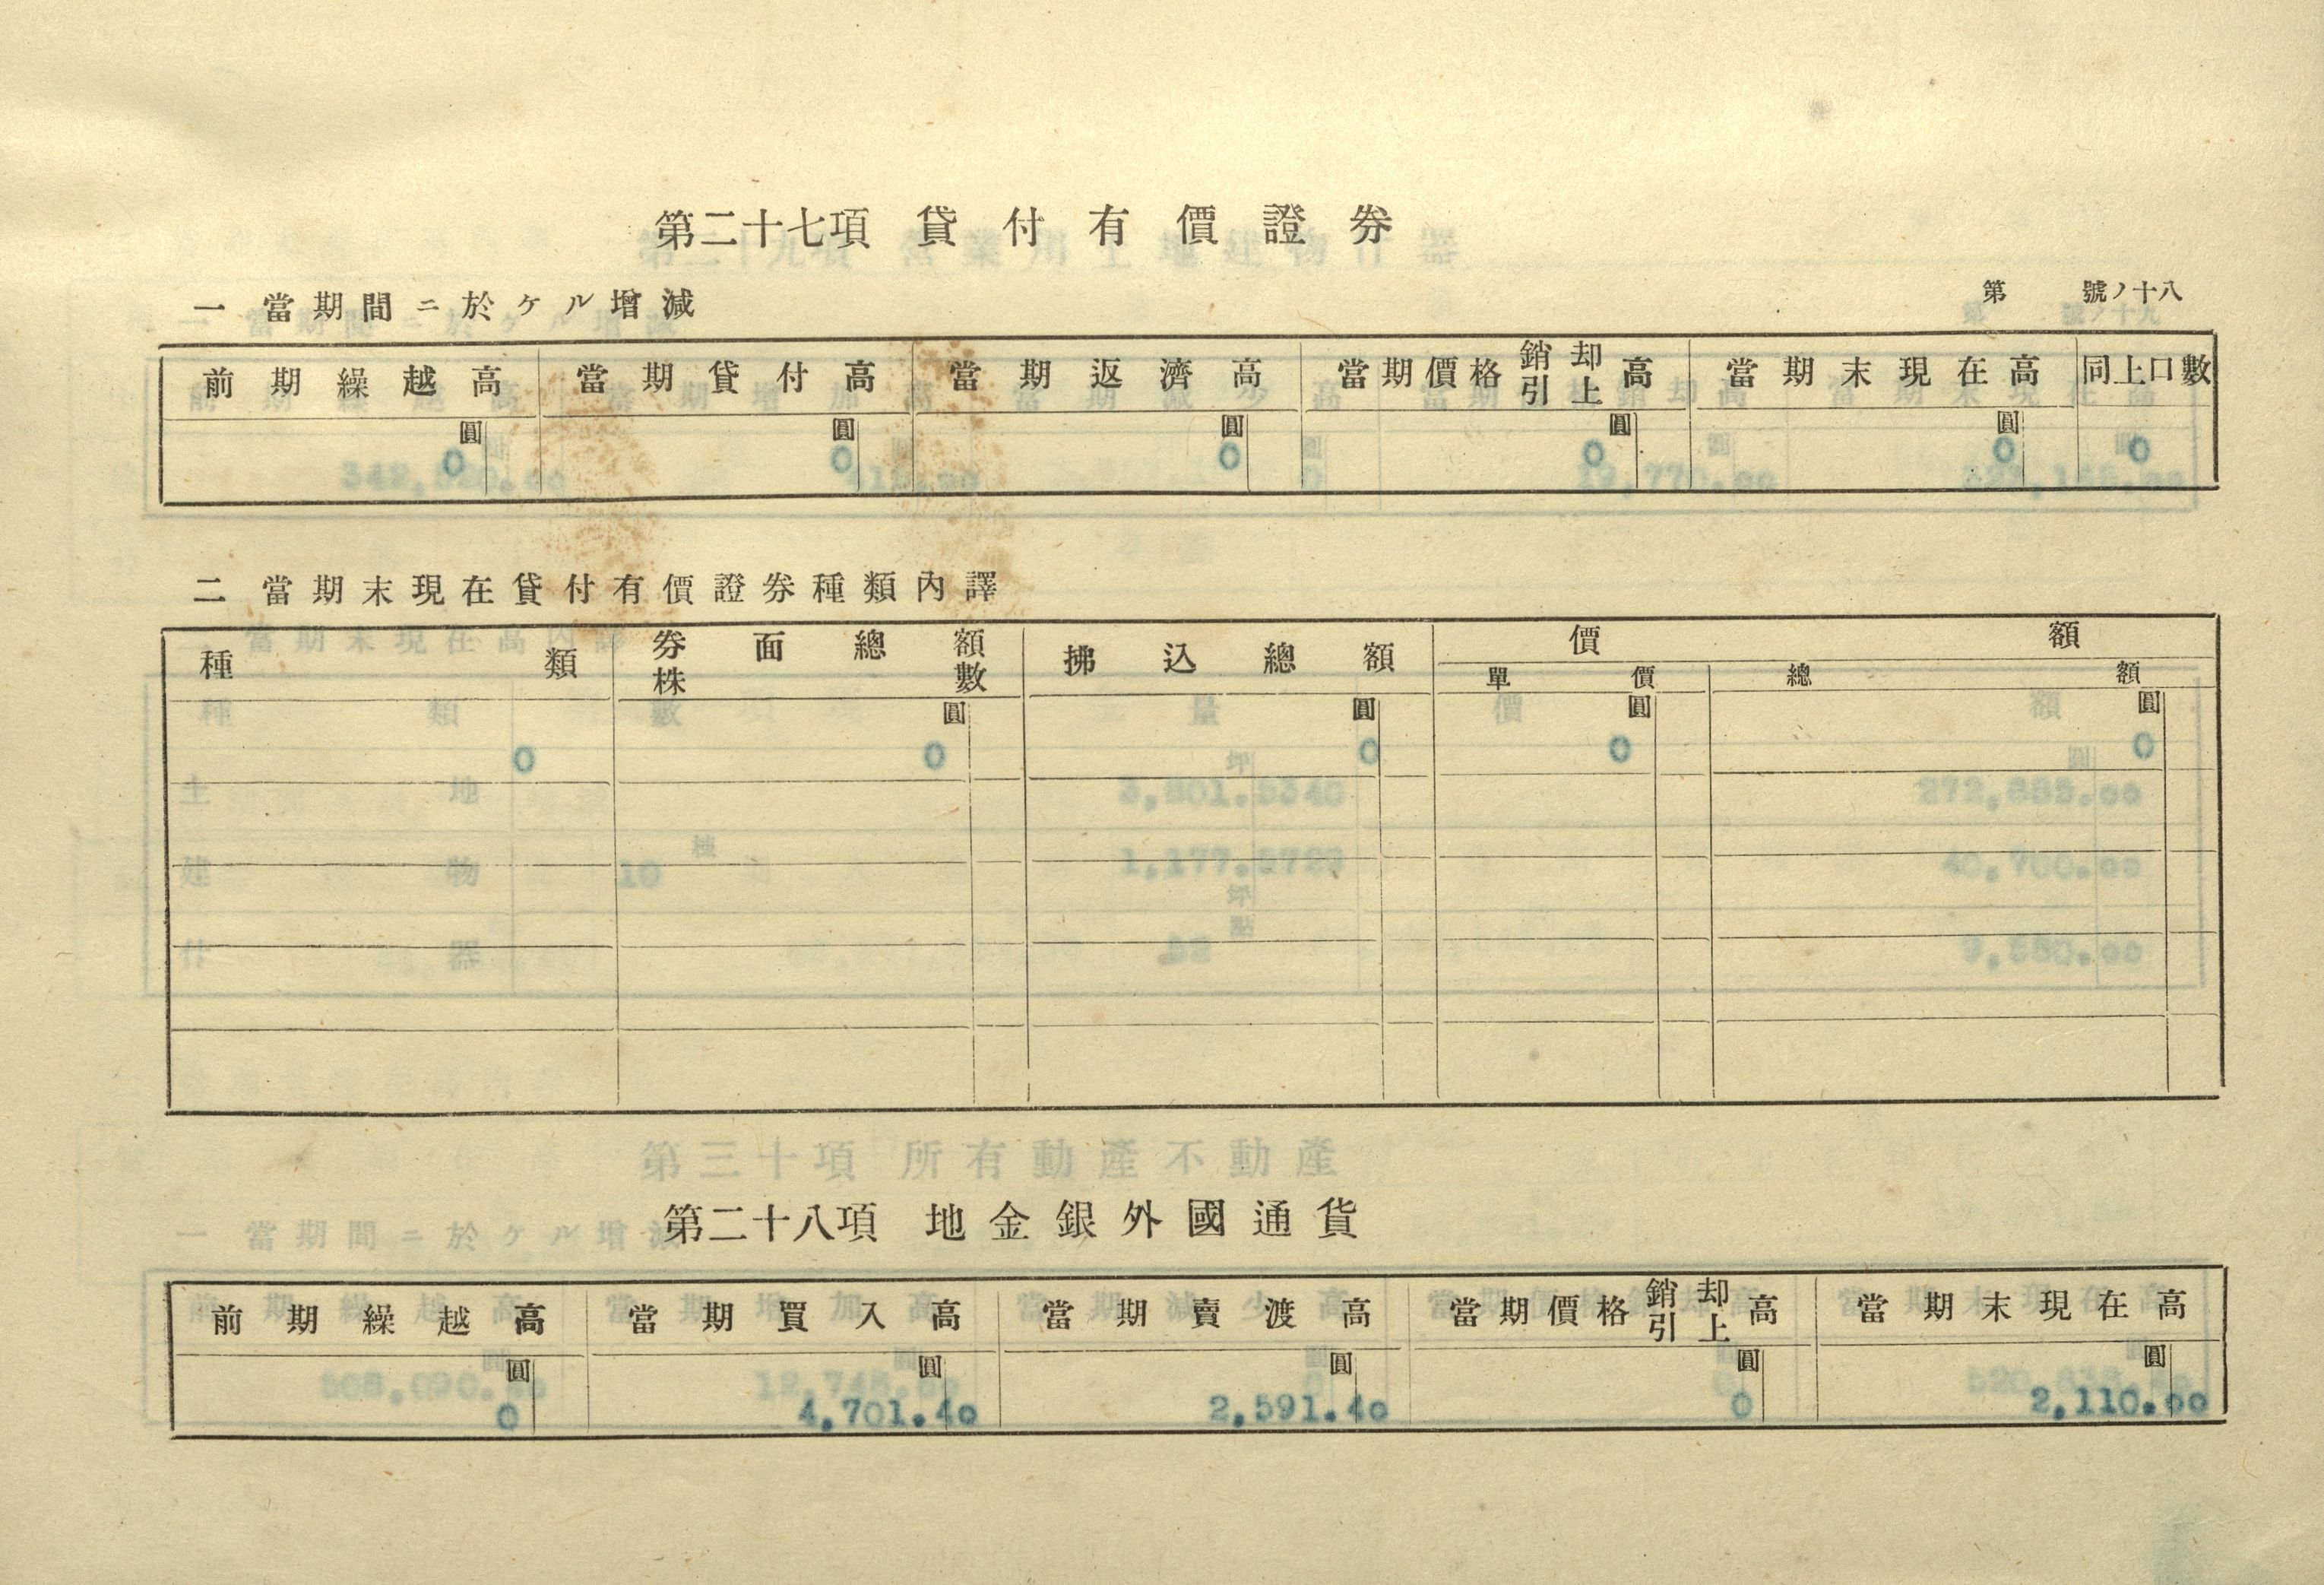 第二十七項 貸付有價證券
第 號ノ十八
一 當期間ニ於ケル增減
前期繰越高 當期貸付高 當期返濟高 當期價格銷却引上高 當期末現在高 同上口數
圓 圓 圓 圓 圓
0 0 0 0 0 0
二 當期末現在貸付有價證券種類內譯
種類 券面總額株數 拂込總額 價額
單價 總額
圓 圓 圓 圓
0 0 0 0 0
第二十八項 地金銀外國通貨
前期繰越高 當期買入高 當期賣渡高 當期價格銷却引上高 當期末現在高
圓 圓 圓 圓 圓
0 4,701.40 2,591.40 0 2,110.00